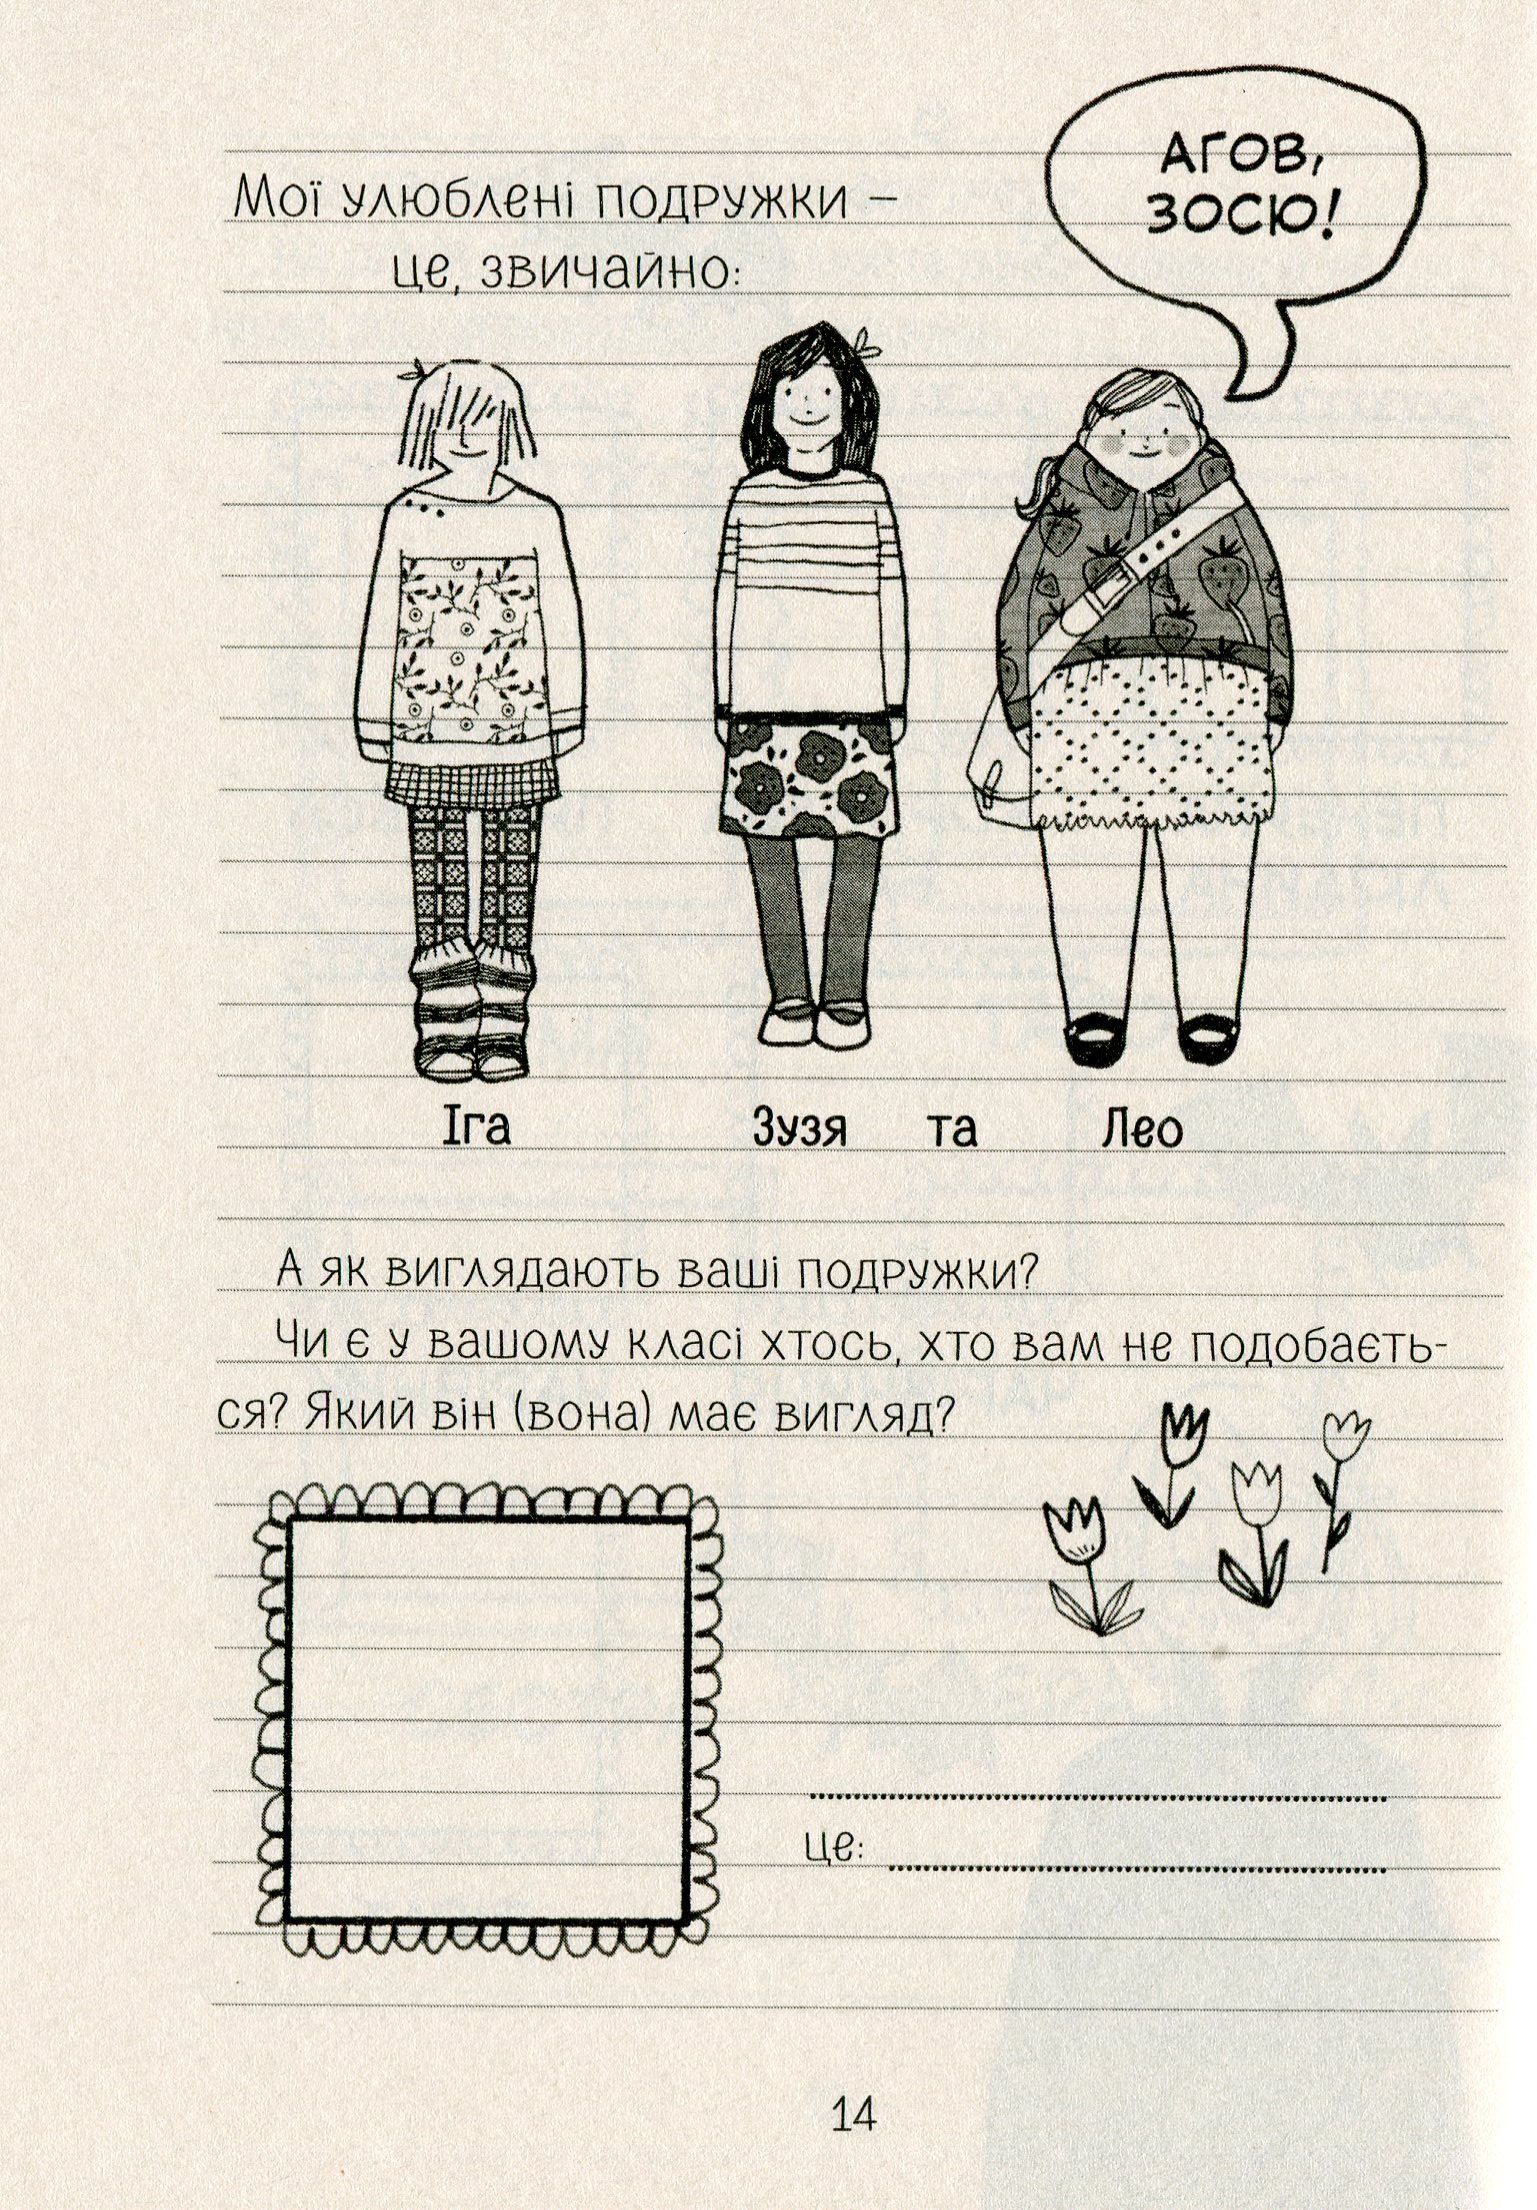 АҐОВ,
ЗОСЮ!
Мої улюблені подружки –
це, звичайно:
Іга Зузя та Лео
А як виглядають ваші подружки?
Чи є у вашому класі хтось, хто вам не подобаєть-
ся? Який він (вона) має вигляд?
Це:
14